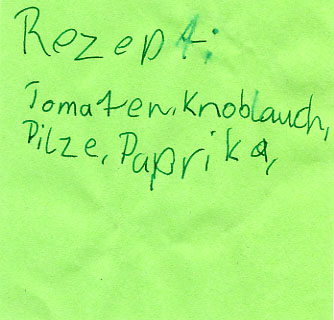 Rezept:
Tomaten, Knoblauch,
Pilze, Paprika,